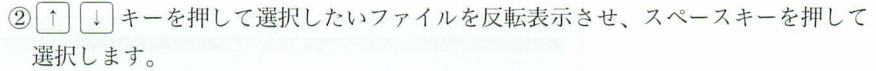 ②↑↓キーを押して選択したいファイルを反転表示させ、スペースキーを押して
選択します。